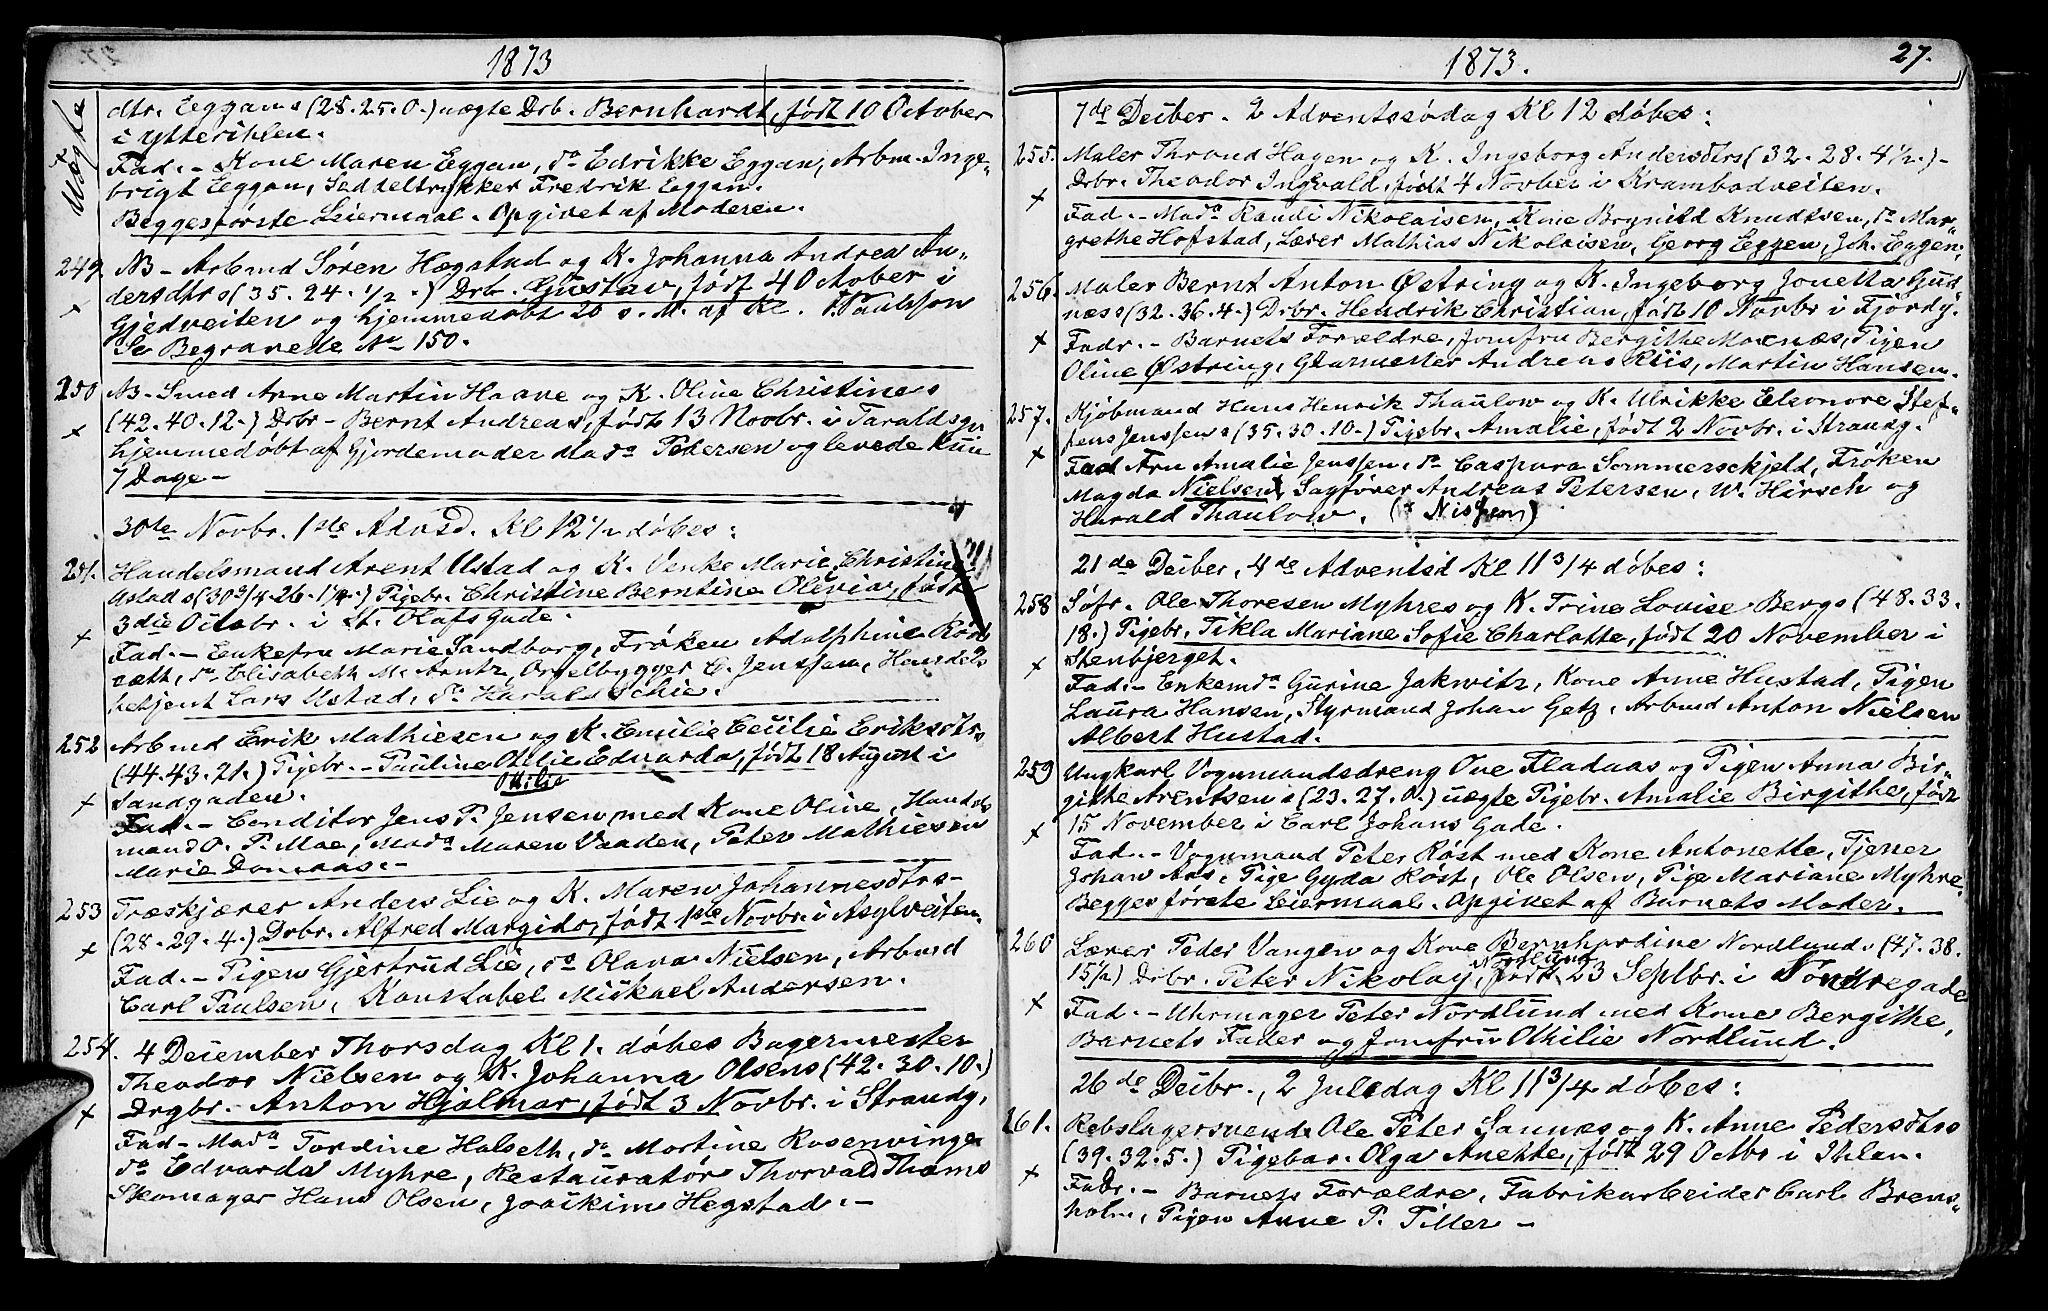 1873
Uægte
dtr. Eggans (28.25.0.) uægte Drb. Bernhardt, født 10 October
i Ytterihlen.
Fad. - Kone Maren Eggan, do Edrikke Eggan, Arbm. Inge-
brigt Eggan, Seddeltrykker Fredrik Eggan.
Begges første Leiermaal. Opgivet af Moderen.
249 NB - Arbmd Sören Hægstad og K. Johanna Andrea An-
dersdtrs (35.24.1/2.) Drb. Gustav, født 4 October i
Gjedveiten og hjemmedøbt 20 s. M. af Kl. Paulsson
Se Begravede No 150.
250 NB - Smed Arne Martin Haave og K. Oline Christines
(42.40.12.) Drbr - Bernt Andreas, født 13 Novbr. i Taraldsgr
hjemmedøbt af Gjordemoder Mada Pedersen og levede kun
7 Dage -
30te Novbr. 1ste Advsd. Kl 12 1/2 døbes:
251. Handelsmand Arent Ustad og K. Venke Marie Christine
Ustads (30 3/4.26.1/4.) Pigebr. Christine Berntine Olevia, født
3die Octobr. i St. Olafs Gade.
Fad. - Enkefru Marie Sandborg, Frøken Adolphine Rod-
cætt, do Elisabeth M. Arntz, Orgelbygger C. Jenssen, Handels-
betjent Lars Ustad, do Harals Schie.
252 Arbmd Erik Mathiesen og K. Emilie Cecilie Eriksdtrs
(44.43.21.) Pigebr. - Pauline Othilie Edvarda, født 18 August i
Ottilie
Sandgaden.
Fad. - Conditor Jens P. Jensen med Kone Oline, Handels
mand O. P. Moe, Mada Maren Vaaden, Peter Mathiesen
Marie Donaas. -
253 Træskjærer Anders Lie og K. Maren Johannesdtrs -
(28.29.4.) Drbr. Alfred Margido, født 1ste Novbr. i Asylveiten.
Fad. - Pigen Gjertrud Lie, do Olava Nielsen, Arbmd
Carl Paulsen, Konstabel Mickael Andersen.
254. 4 December Thorsdag Kl 1. døbes Bagermester
Theodor Nielsen og K. Johanna Olsens (42.30.10.)
Drgbr. - Anton Hjalmar, født 3 Novbr. i Strandg.
Fad - Mada Tordine Halseth, do Martine Rosenvinge
do Edvarda Myhre, Restauratør Thorvald Thams
Skomager Hans Olsen, Joakim Hegstad. -
1873. 27.
7de Decber. 2 Adventssødag Kl 12 døbes:
255. Maler Thrond Hagen og K. Ingeborg Andersdtrs (32.28.4 1/2.) -
Drbr. Theodor Ingvald, født 4 Novber i Krambodveiten.
Fad. - Mada Randi Nikolaisen, Kone Brynild Knudtsen, do Mar-
grethe Hofstad, Lærer Mathias Nikolaisen, Georg Eggen, Joh. Eggen.
256. Maler Bernt Anton Østring og K. Ingeborg Jonetta Gud-
næss (32.36.4.) Drbr. Hendrik Christian, født 10 Novbr i Fjordg.
Fadr. - Barnets Forældre, Jomfru Bergithe Moxnæs, Pigen
Oline Østring, Glarmester Andreas Riis, Martin Hansen.
257. Kjøbmand Hans Henrik Thaulow og K. Ulrikke Eleonore Stef-
fens Jenssens (35.30.10.) Pigebr. Amalie, født 2 Novbr. i Strandg.
Fad Fru Amalie Jenssen, do Caspara Sommerschjeld, Frøken
Magda Nielsen, Sagfører Andreas Petersen, W. Hirsch og
Harald Thaulow. (x Nissen)
21de Decber, 4de Adventsd Kl 11 3/4 døbes:
258 Søfr. Ole Thoresen Myhres og K. Trine Lovise Bergs (48.33.
18.) Pigebr. Tikla Mariane Sofie Charlotte, født 20 November i
Stenbjerget.
Fad. - Enkemda Gurine Jakwitz, Kone Anne Hustad, Pigen
Laura Hansen, Styrmand Johan Getz, Arbmd Anton Nielsen
Albert Hustad.
259 Ungkarl Vognmandsdreng Ove Fladaas og Pigen Anna Bir-
githe Arentsens (23.27.0.) uægte Pigebr. Amalie Birgithe, født
15 November i Carl Johans Gade.
Fad. - Vognmand Peter Røst med Kone Antonette, Tjener
Johan Aas, Pige Gyda Røst, Ole Olsen, Pige Mariane Myhre.
Begges første Leiermaal. Opgivet af Barnets Moder.
260 Lærer Peder Vangen og Kone Bernhardine Nordlunds (47.38.
15 1/2) Drbr. Peter Nikolay Nordlund, født 23 Septbr. i Søndregade
Fad. - Uhrmager Peter Nordlund med Kone Bergithe,
Barnets Fader og Jomfru Othilie Nordlund.
26de Decbr., 2 Juledag Kl 11 3/4 døbes:
261. Rebslagersvend Ole Peter Sannæs og K. Anne Pedersdtrs
(39.32.5.) Pigebar. Olga Anette, født 29 Octbr i Ihlen.
Fadr. - Barnets Forældre, Fabrikarbeider Carl Brens-
holm, Pigen Anne P. Tiller -